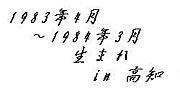 1983年4月
～1984年3月
生まれ
in 高知